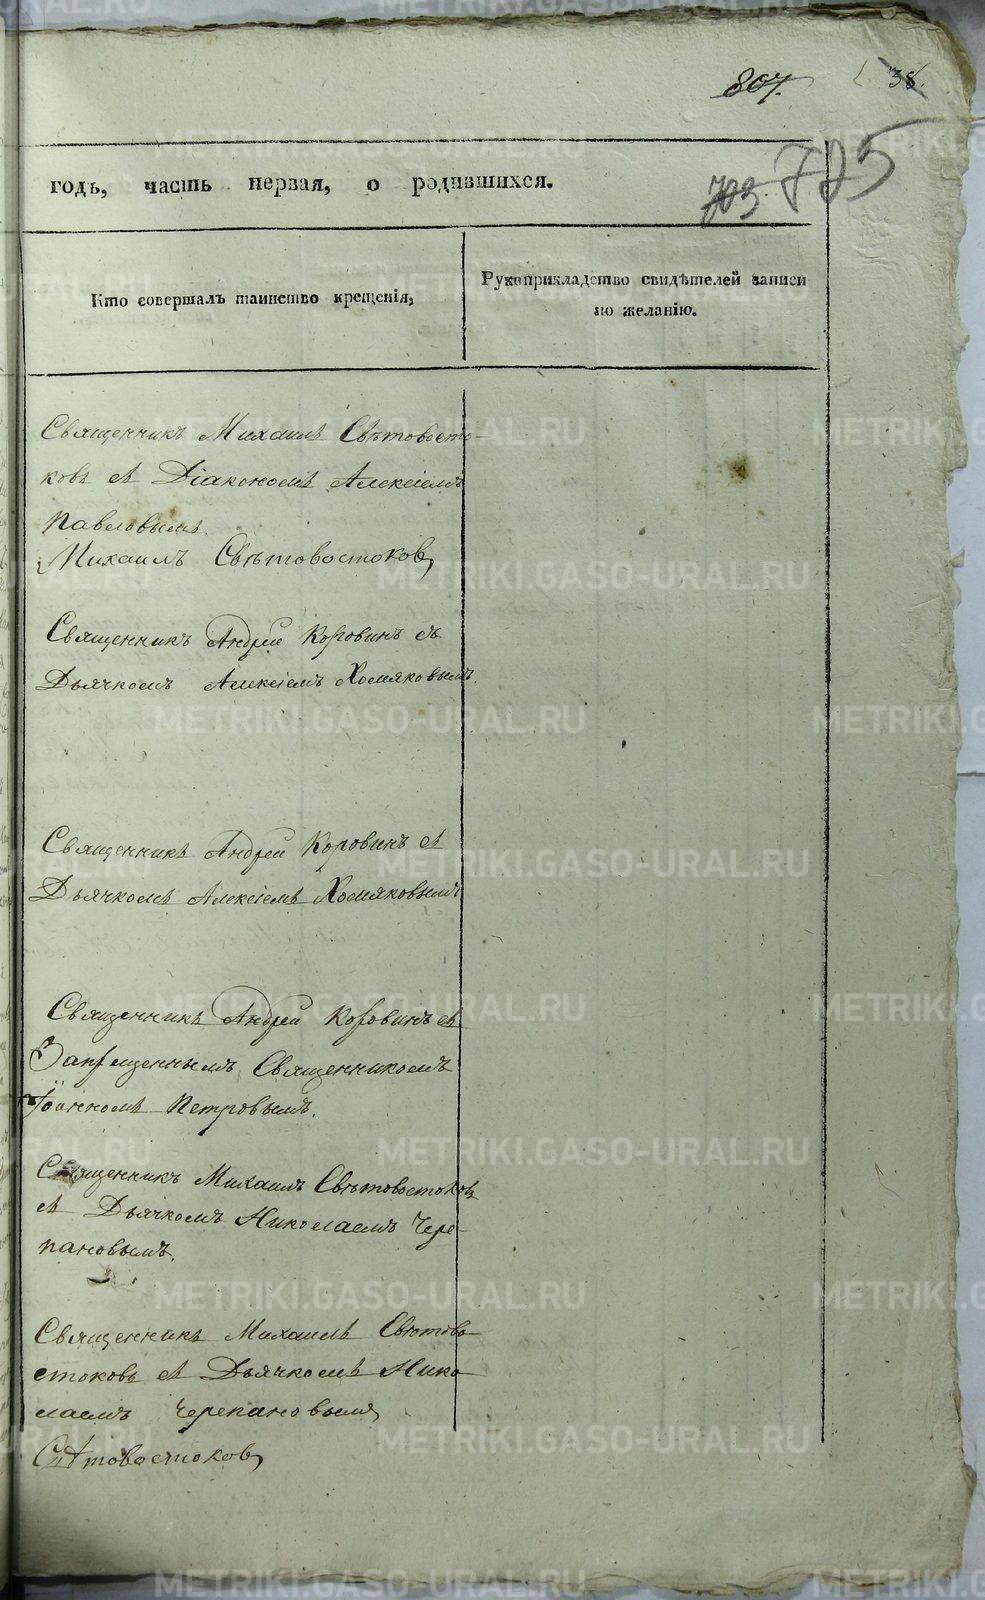 807.
38.
703. 705
годъ, часть первая, о родившихся.
Кто совершалъ таинство крещенія,
Рукоприкладство свидѣтелей записи
по желанію.
Священникъ Михаилъ Свѣтовосто-
ковъ съ Діакономъ Алексіемъ
Павловымъ.
Михаилъ Свѣтовостоковъ
Священникъ Андрей Коровинъ съ
Дьячкомъ Алексіемъ Хомяковымъ.
Священникъ Андрей Коровинъ съ
Дьячкомъ Алексіемъ Хомяковымъ
Священникъ Андрей Коровинъ съ
Запрещеннымъ Священникомъ
Іоанномъ Петровымъ.
Священникъ Михаилъ Свѣтовостоковъ
съ Дьячкомъ Николаемъ Чере-
пановымъ.
Священникъ Михаилъ Свѣтово-
стоковъ съ Дьячкомъ Нико-
лаемъ Черепановымъ
Свѣтовостоковъ
METRIKI.GASO-URAL.RU